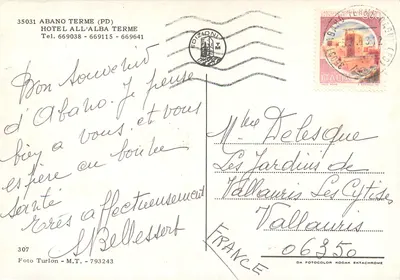 35031 ABANO TERME (PD)
HOTEL ALL'ALBA TERME
Tel. 669038 - 669115 - 669641
Bon souvenir
d'Abano. Je pense
bien a vous, et vous
espère en bonne
santé
Très affectueusement
S Bellessort
307
Foto Turlon - M.T. - 793243
Mme Delesque
Les Jardins de
Vallauris Les Cytises
Vallauris
06350
FRANCE
CH FOTOCOLOR KODAK EKTACHROME